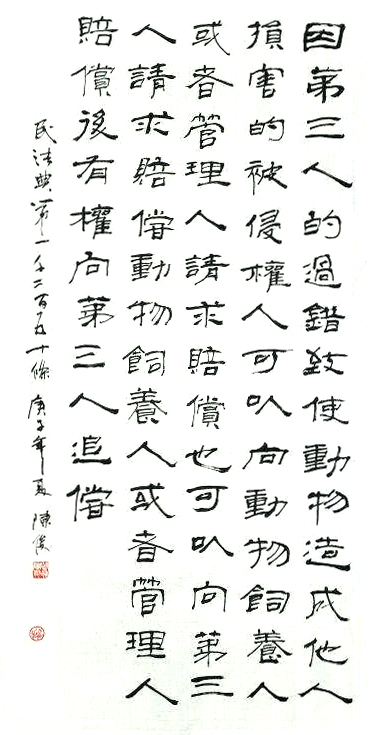 因第三人的過錯致使動物造成他人
損害的被侵權人可以向動物飼養人
或者管理人請求賠償也可以向第三
人請求賠償動物飼養人或者管理人
賠償後有權向第三人追償
民法典第一千二百五十條 庚子年夏 陳俊